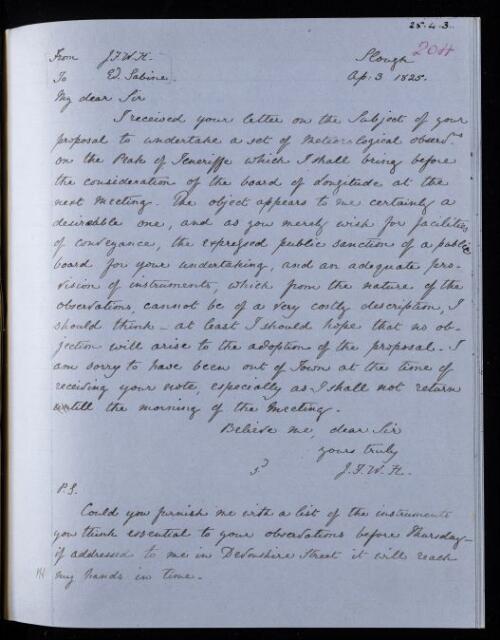 25.4.3.
204
From J.F.W.H. Slough
To Ed. Sabine. Ap. 3 1825.
My dear Sir
I received your letter on the Subject of your
proposal to undertake a set of Meteorological observns
on the Peak of Teneriffe which I shall bring before
the consideration of the board of Longitude at the
next Meeting. The object appears to me certainly a
desireable one, and as you merely wish for facilities
of conveyance, the expressed public sanction of a public
board for your undertaking, and an adequate pro-
vision of instruments, which from the nature of the
observations, cannot be of a very costly description, I
should think - at least I should hope that no ob-
jection will arise to the adoption of the proposal. I
am sorry to have been out of Town at the time of
receiving your note, especially as I shall not return
untill the morning of the Meeting.
Believe me, dear Sir
yours truly
J.F.W.H.
P.S.
Could you furnish me with a list of the instruments
you think essential to your observations before Thursday -
if addressed to me in Devonshire Street it will reach
my hands in time -